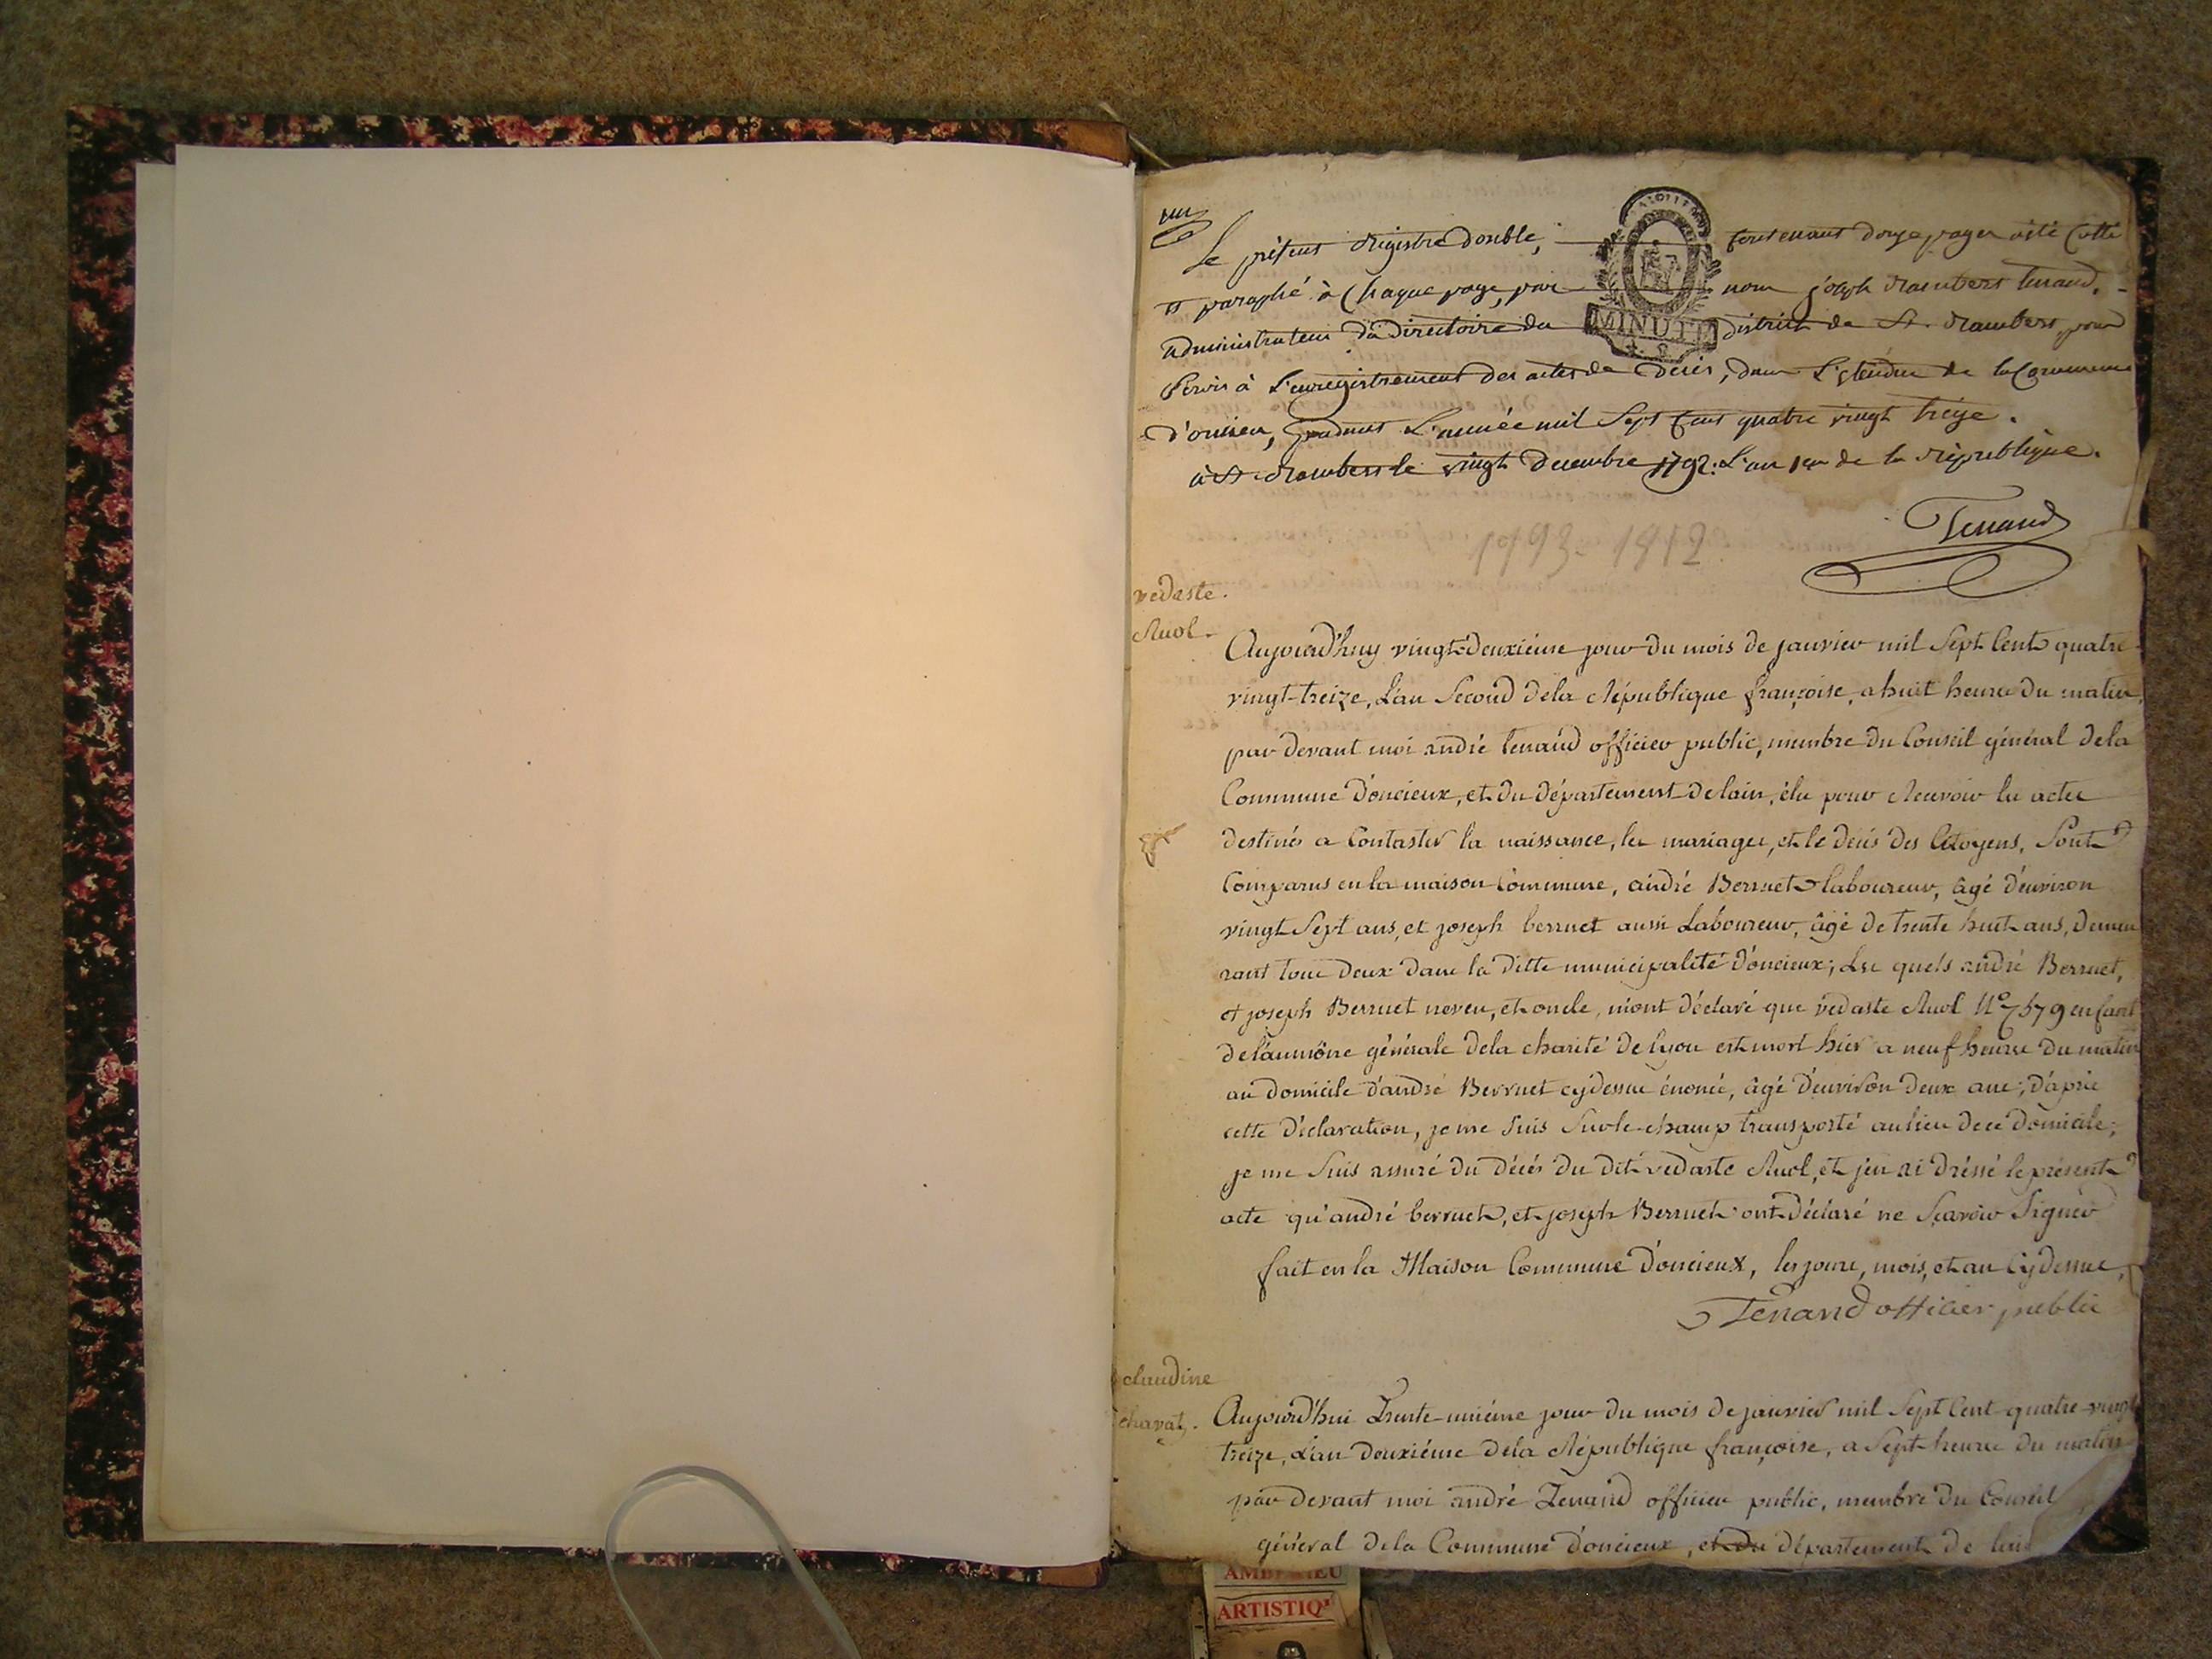 un
Le présent Registre double, contenant douze pages a été cotté
et paraphé à chaque page, par nous joseph Rambert tenand,
administrateur du directoire du district de St. Rambert, pour
servir à L'enregistrement des actes de décès, dans L'étendue de la Commune
d'oncieu, pendant L'année mil Sept Cent quatre vingt treize.
à St Rambert le vingt decembre 1792: L'an 1er de la république.
MINUTE
Tenand
1793-1812
vedaste
Ruol
Aujourd'huy vingt-deuxiéme jour du mois de janvier mil Sept Cent quatre
vingt-treize, L'an Second de la République françoise, a huit heures du matin,
par devant moi andré tenand officier public, membre du Conseil général de la
Commune d'oncieux, et du département de lain, élu pour Recevoir les actes
destinés a Contaster la naissance, les mariages, et le décés des Citoyens, Sont
Comparus en la maison Commune, andré Berruet laboureur, âgé d'environ
vingt Sept ans, et joseph berruet aussi Laboureur, âgé de trente huit ans, demeu
rant tous deux dans la ditte municipalité d'oncieux; Les quels andré Berruet,
et joseph Berruet neveu, et oncle, m'ont déclaré que vedaste Ruol N° 7579 enfant
de l'aumône générale de la charité de lyon est mort hier a neuf heures du matin
au domicile d'andré Berruet cydessus énoncé, âgé d'environ deux ans; d'après
cette déclaration, je me Suis Sur le champ transporté au lieu de ce domicile;
je me Suis assuré du décés du dit vedaste Ruol, et j'en ai dréssé le présent
acte qu'andré berruet, et joseph Berruet ont déclaré ne Sçavoir Signer
fait en la Maison Commune d'oncieux, les jours, mois, et an Cydessus,
Tenand officier public
claudine
chavat.
Aujourd'hui Trente-uniéme jour du mois de janvier mil Sept Cent quatre-vingt
treize, L'an deuxiéme de la République françoise, a Sept heures du matin
par devant moi andré Tenand officier public, membre du Conseil
général de la Commune d'oncieux, et du département de lain
ARTISTIQ